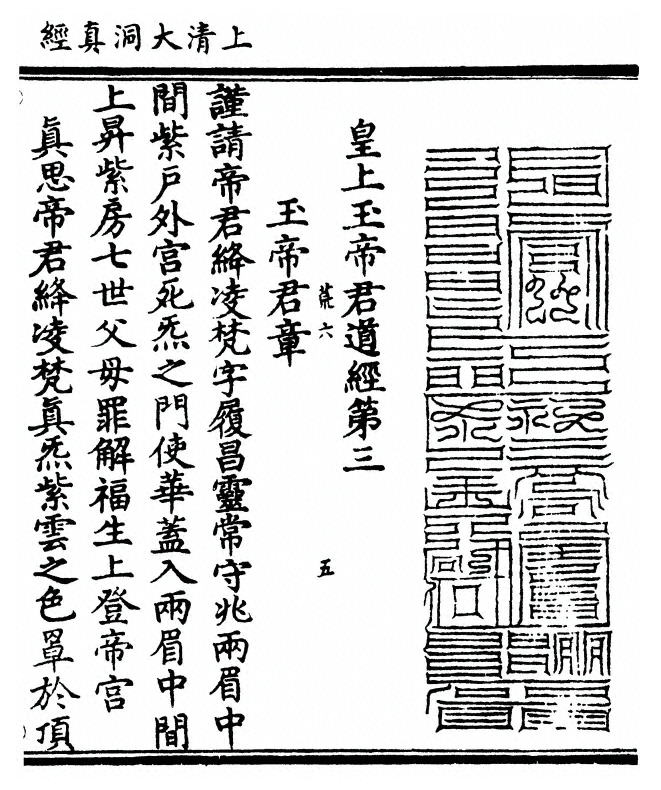 上清大洞真經
皇上玉帝君道經第三
荒六
五
玉帝君章
謹請帝君絳凌梵字履昌靈常守兆兩眉中
間紫戶外宮死炁之門使華蓋入兩眉中間
上昇紫房七世父母罪解福生上登帝宮
真思帝君絳凌梵真炁紫雲之色罩於頂